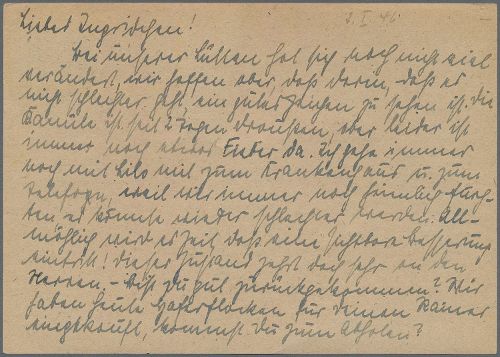 2. I. 46
Liebes Ingridchen!
Bei unserer Lütten hat sich noch nicht viel
verändert, wir hoffen aber, daß darin, daß es
nicht schlechter geht, ein gutes Zeichen zu sehen ist. Die
Kanüle ist seit 2 Tagen draußen, aber leider ist
immer noch etwas Fieber da. Ich gehe immer
noch mit Lilo mit zum Krankenhaus u. zum
Telefon, weil wir immer noch heimlich fürch-
ten es könnte wieder schlechter werden. All-
mählich wird es Zeit, daß eine sichtbare Besserung
eintritt! Dieser Zustand zehrt doch sehr an den
Nerven. – Bist Du gut zurückgekommen? Wir
haben heute Haferflocken für Deinen Rainer
eingekauft, kommst Du zum Abholen?